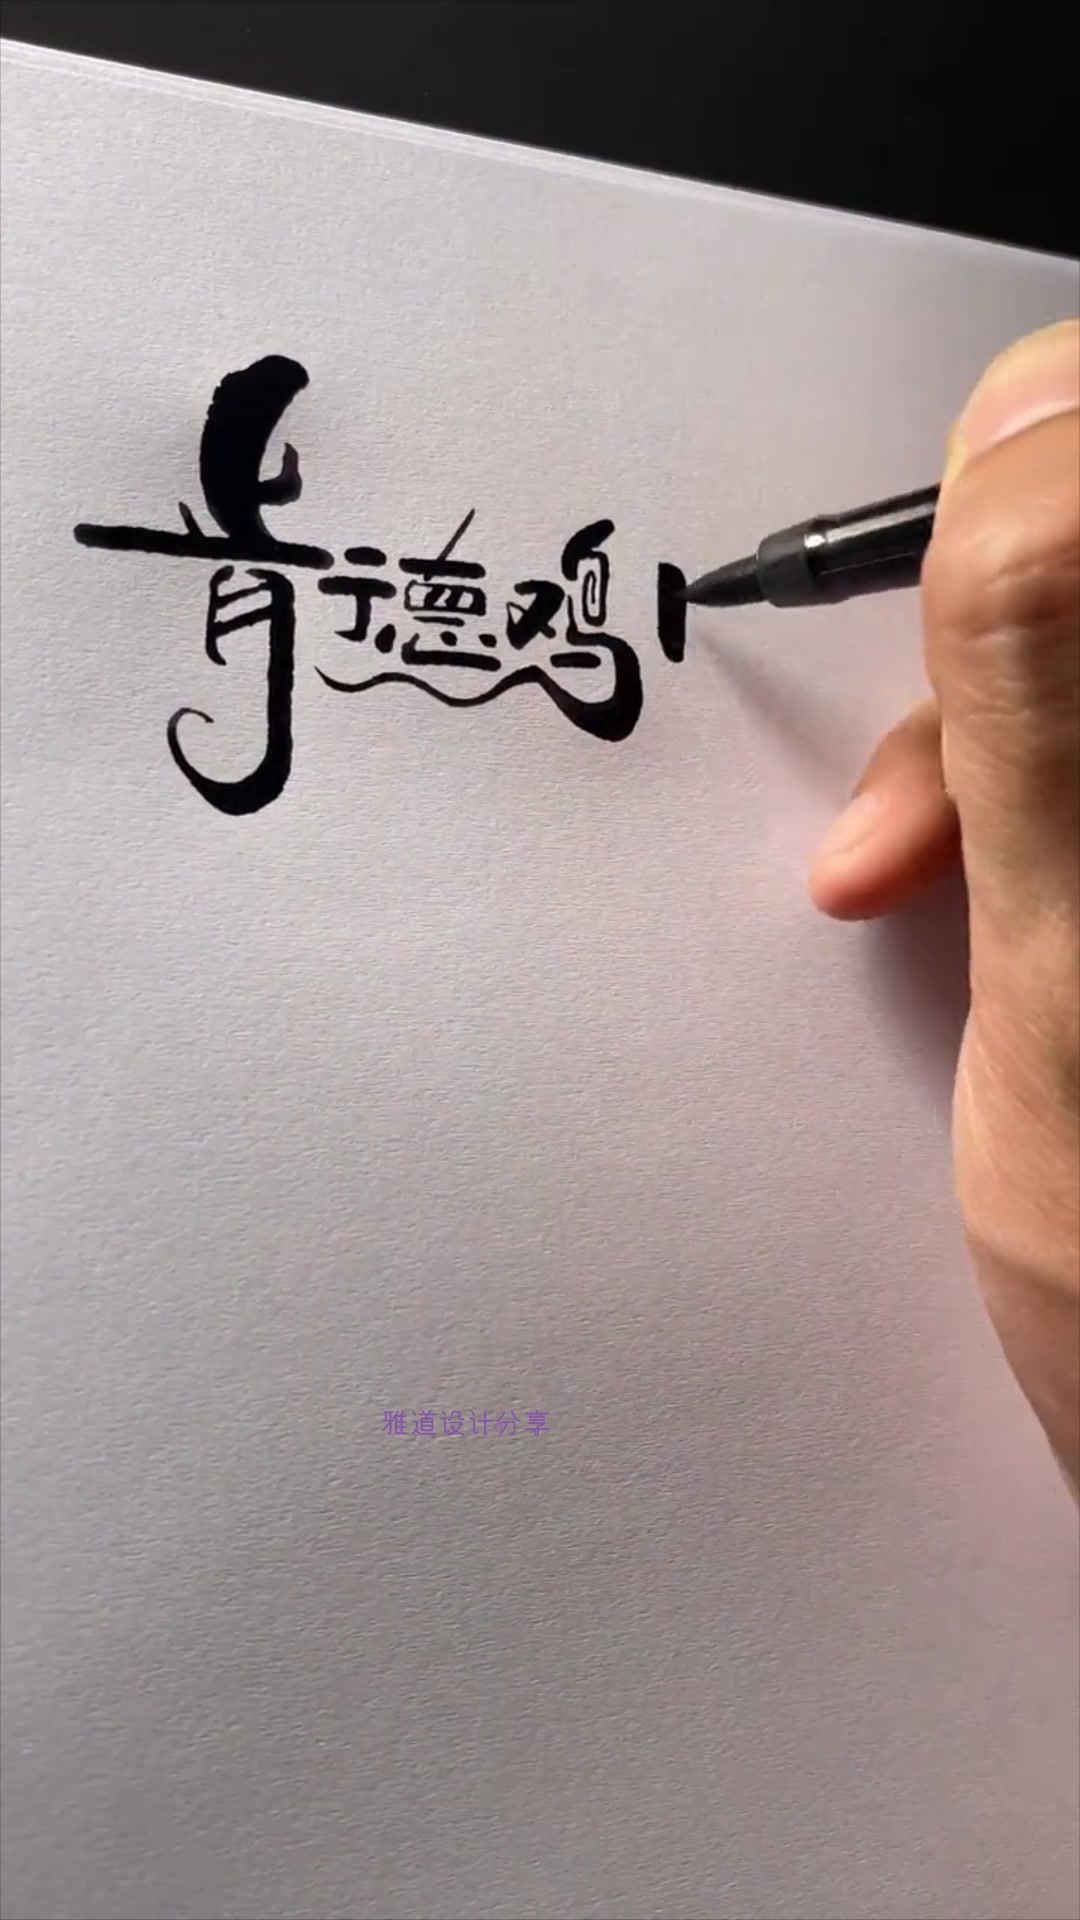 肯德鸡
雅道设计分享